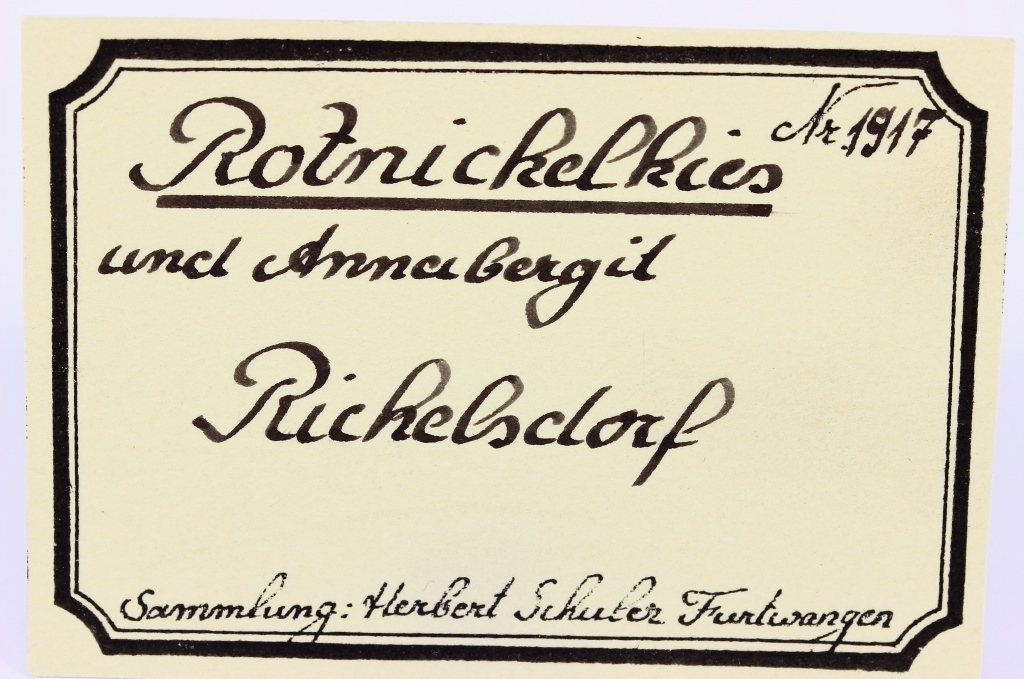 Nr. 1917
Rotnickelkies
und Annabergit
Richelsdorf
Sammlung: Herbert Schuler Furtwangen